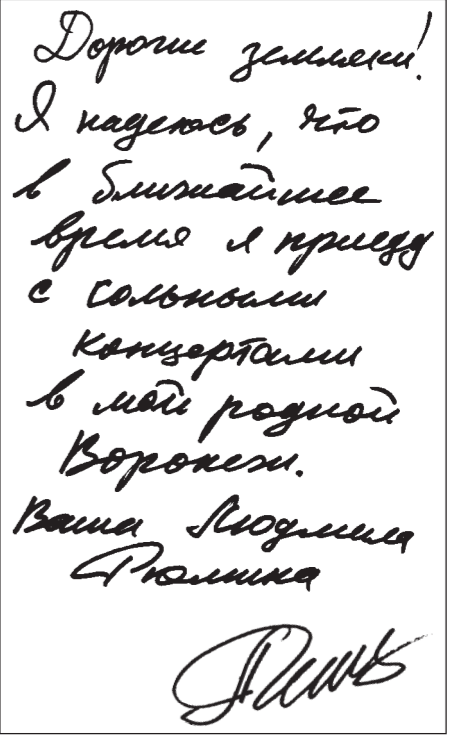 Дорогие земляки!
Я надеюсь, что
в ближайшее
время я приеду
с сольными
концертами
в мой родной
Воронеж.
Ваша Людмила
Рюмина